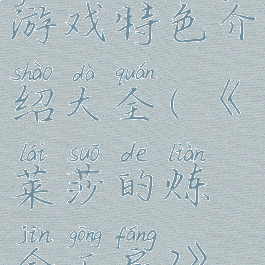 游戏特色介
shào dà quán
绍大全(《
lái suō de liàn
莱莎的炼
jīn gōng fáng